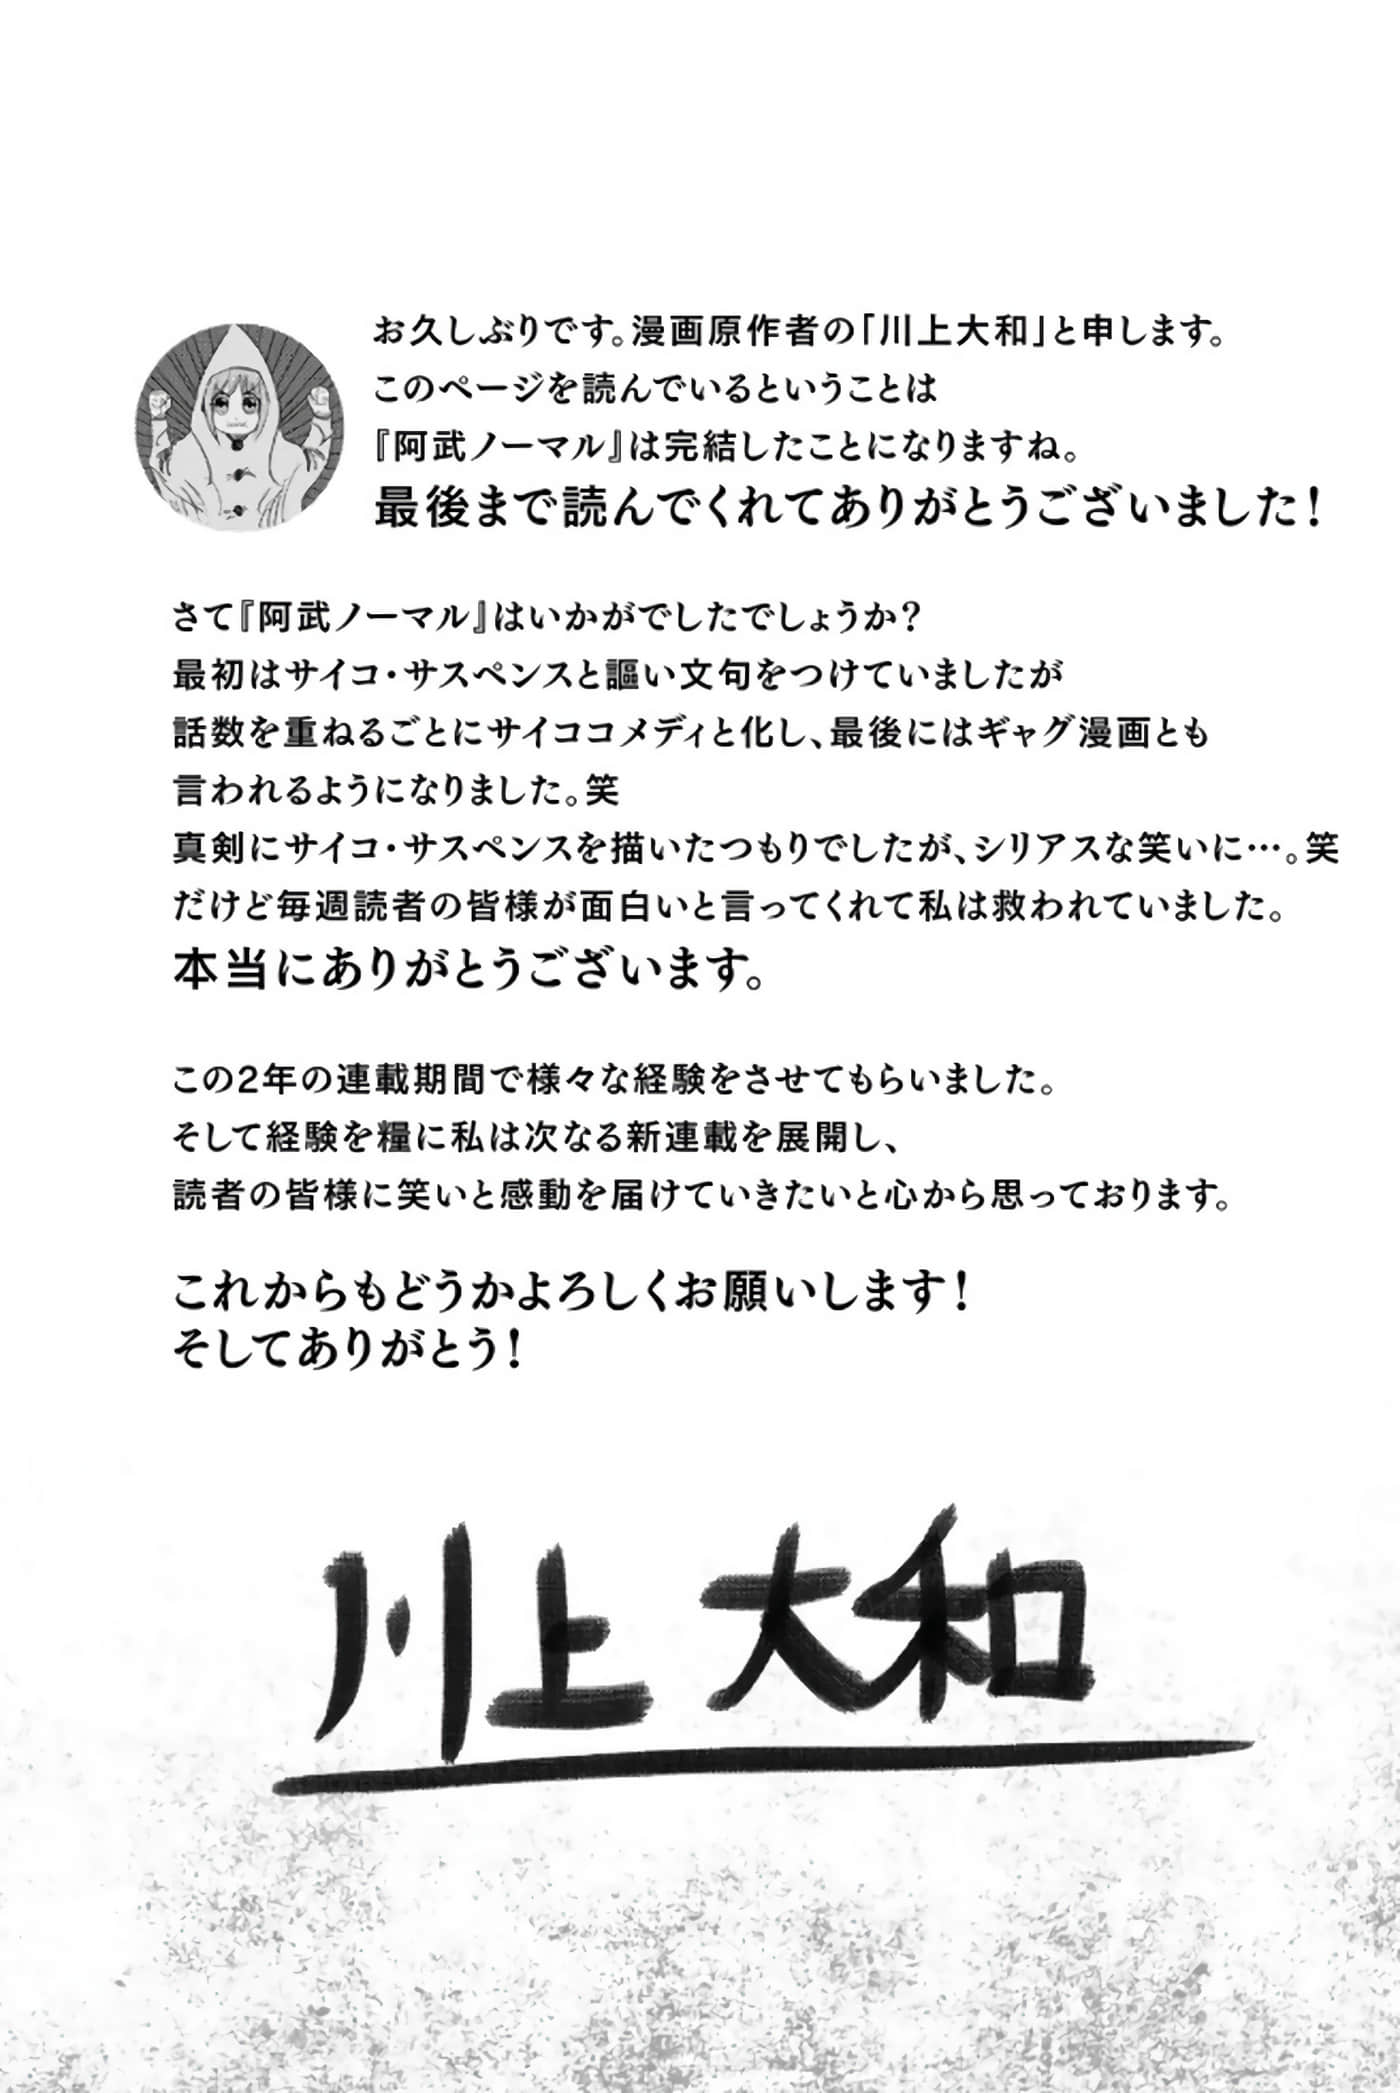 お久しぶりです。漫画原作者の「川上大和」と申します。
このページを読んでいるということは
『阿武ノーマル』は完結したことになりますね。
最後まで読んでくれてありがとうございました！
さて『阿武ノーマル』はいかがでしたでしょうか？
最初はサイコ・サスペンスと謳い文句をつけていましたが
話数を重ねるごとにサイココメディと化し、最後にはギャグ漫画とも
言われるようになりました。笑
真剣にサイコ・サスペンスを描いたつもりでしたが、シリアスな笑いに…。笑
だけど毎週読者の皆様が面白いと言ってくれて私は救われていました。
本当にありがとうございます。
この2年の連載期間で様々な経験をさせてもらいました。
そして経験を糧に私は次なる新連載を展開し、
読者の皆様に笑いと感動を届けていきたいと心から思っております。
これからもどうかよろしくお願いします！
そしてありがとう！
川上 大和